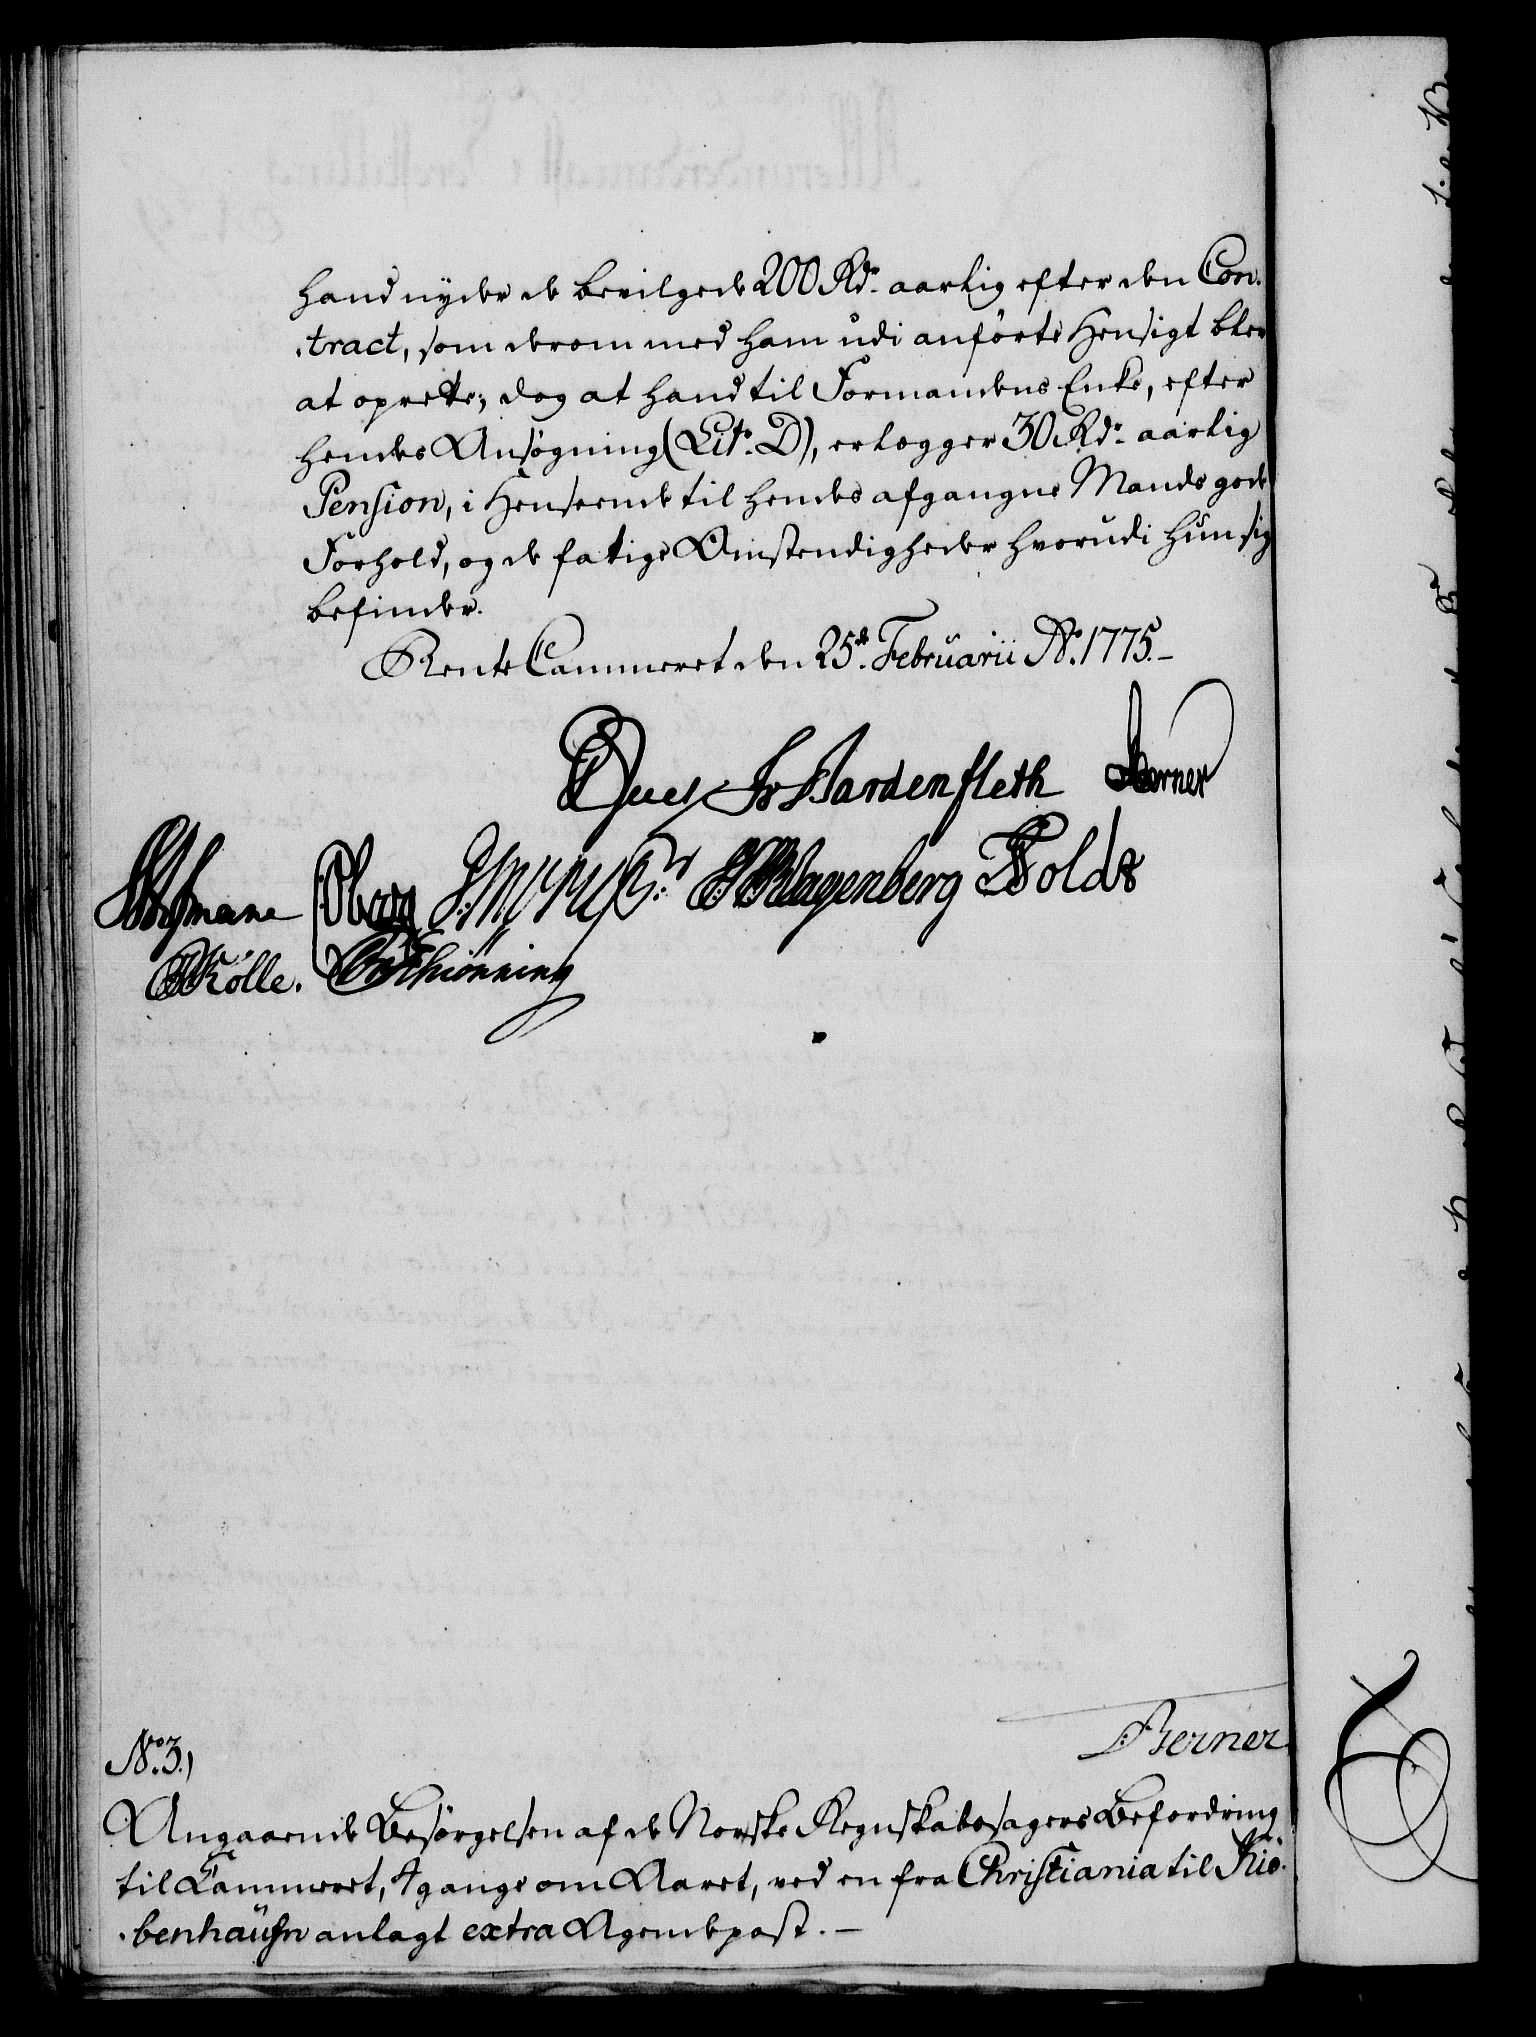 hand nyder de bevilgede 200 Rdr. aarlig efter den Con-
-tract, som derom med ham udi anførte Hensigt bler
at oprette; dog at hand til Formandens Enke, efter
hendes Ansøgning (Litr. D), erlægger 30 Rdr. aarlig
Pension, i Henseende til hendes afgangne Mands gode
Forhold, og de fatige Omstendigheder hvorudi hun sig
befinder.
Rente Cammeret den 25de Februarii Ao. 1775.-
Juel Fr Bardenfleth Berner
Oberg Klagenberg Toldr
Kølle. Schiønning
Berner.
No. 3.)
Angaaende Besørgelsen af de Norske Regnskabssagers Befordring
til Cammeret, 4 gange om Aaret, ved en fra Christiania til Kiø-
-benhaufn anlagt extra Agendepost. -